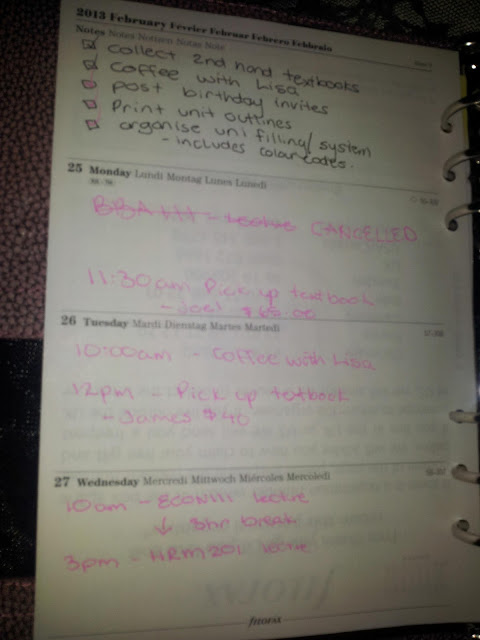 2013 February Février Februar Febrero Febbraio
Notes Notes Notizen Notas Note
collect 2nd hand textbooks
coffee with Lisa
post birthday invites
Print unit outlines
organise uni filling/system
- includes colour codes.
25 Monday Lundi Montag Lunes Lunedì
BBA111 - lecture CANCELLED
11:30am Pick up textbook
- Joel $65.00
26 Tuesday Mardi Dienstag Martes Martedì
10:00am - Coffee with Lisa
12pm - Pick up textbook
- James $40
27 Wednesday Mercredi Mittwoch Miércoles Mercoledì
10am - ECON111 lecture
↓ 3hr break
3pm - HRM201 lecture
filofax